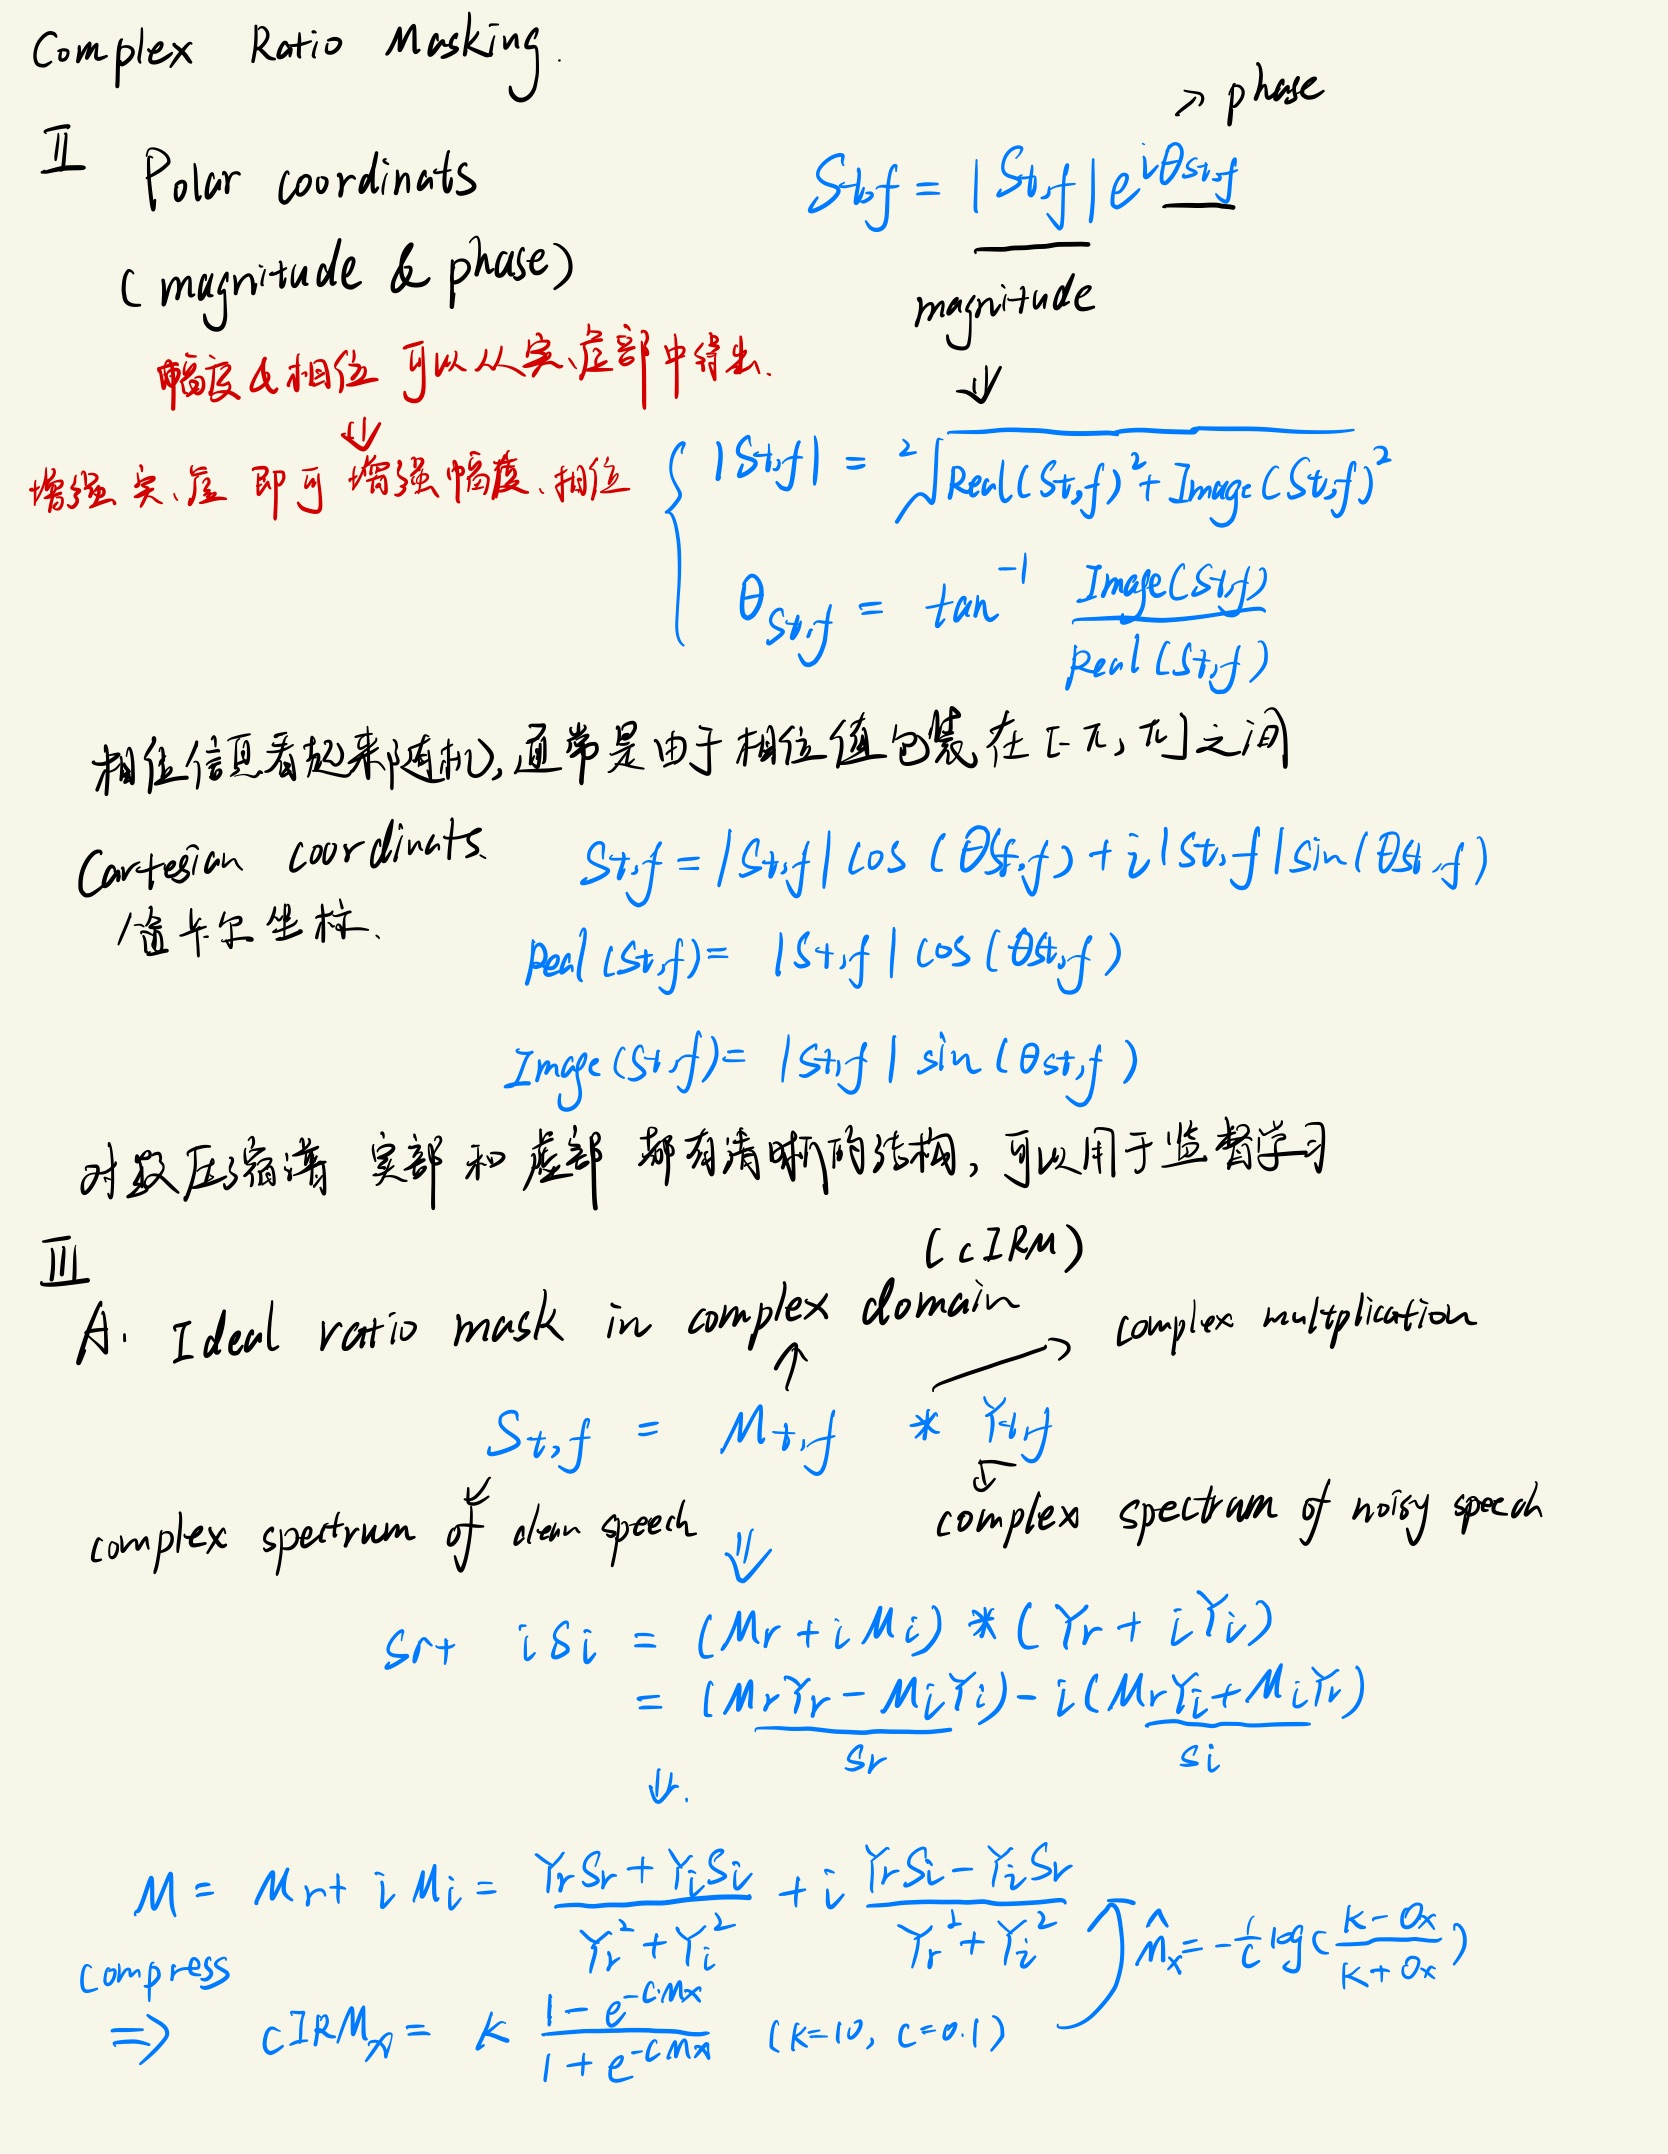 Complex Ratio Masking.
→ phase
II Polar coordinats
(magnitude & phase)
St,f = |St,f| e^{iθSt,f}
magnitude
⇓
幅度&相位 可以从实、虚部中得出.
⇓
增强实、虚 即可 增强幅度、相位
{ |St,f| = ²√Real(St,f)² + Image(St,f)²
θ_{St,f} = tan⁻¹ Image(St,f) / Real(St,f)
相位信息看起来随机, 通常是由于相位值包装在 [-π, π] 之间
Cartesian coordinats.
笛卡尔坐标.
St,f = |St,f| cos (θSt,f) + i|St,f| sin(θSt,f)
Real(St,f) = |St,f| cos (θSt,f)
Image(St,f) = |St,f| sin (θSt,f)
对数压缩谱 实部 和 虚部 都有清晰的结构, 可以用于监督学习
III
(cIRM)
A. Ideal ratio mask in complex domain
→ complex multplication
↑
St,f = Mt,f * Yt,f
complex spectrum of clean speech
complex spectrum of noisy speech
⇓
Sr+ iSi = (Mr + iMi) * (Yr + iYi)
= (MrYr - MiYi) - i(MrYi + MiYr)
Sr Si
⇓.
M = Mr+ iMi = (YrSr + YiSi) / (Yr² + Yi²) + i (YrSi - YiSr) / (Yr² + Yi²)
M̂x = -1/c log( (K - Ox) / (K + Ox) )
compress
⇒ cIRMx = K (1 - e^{-C·Mx}) / (1 + e^{-CMx}) (K=10, C=0.1)